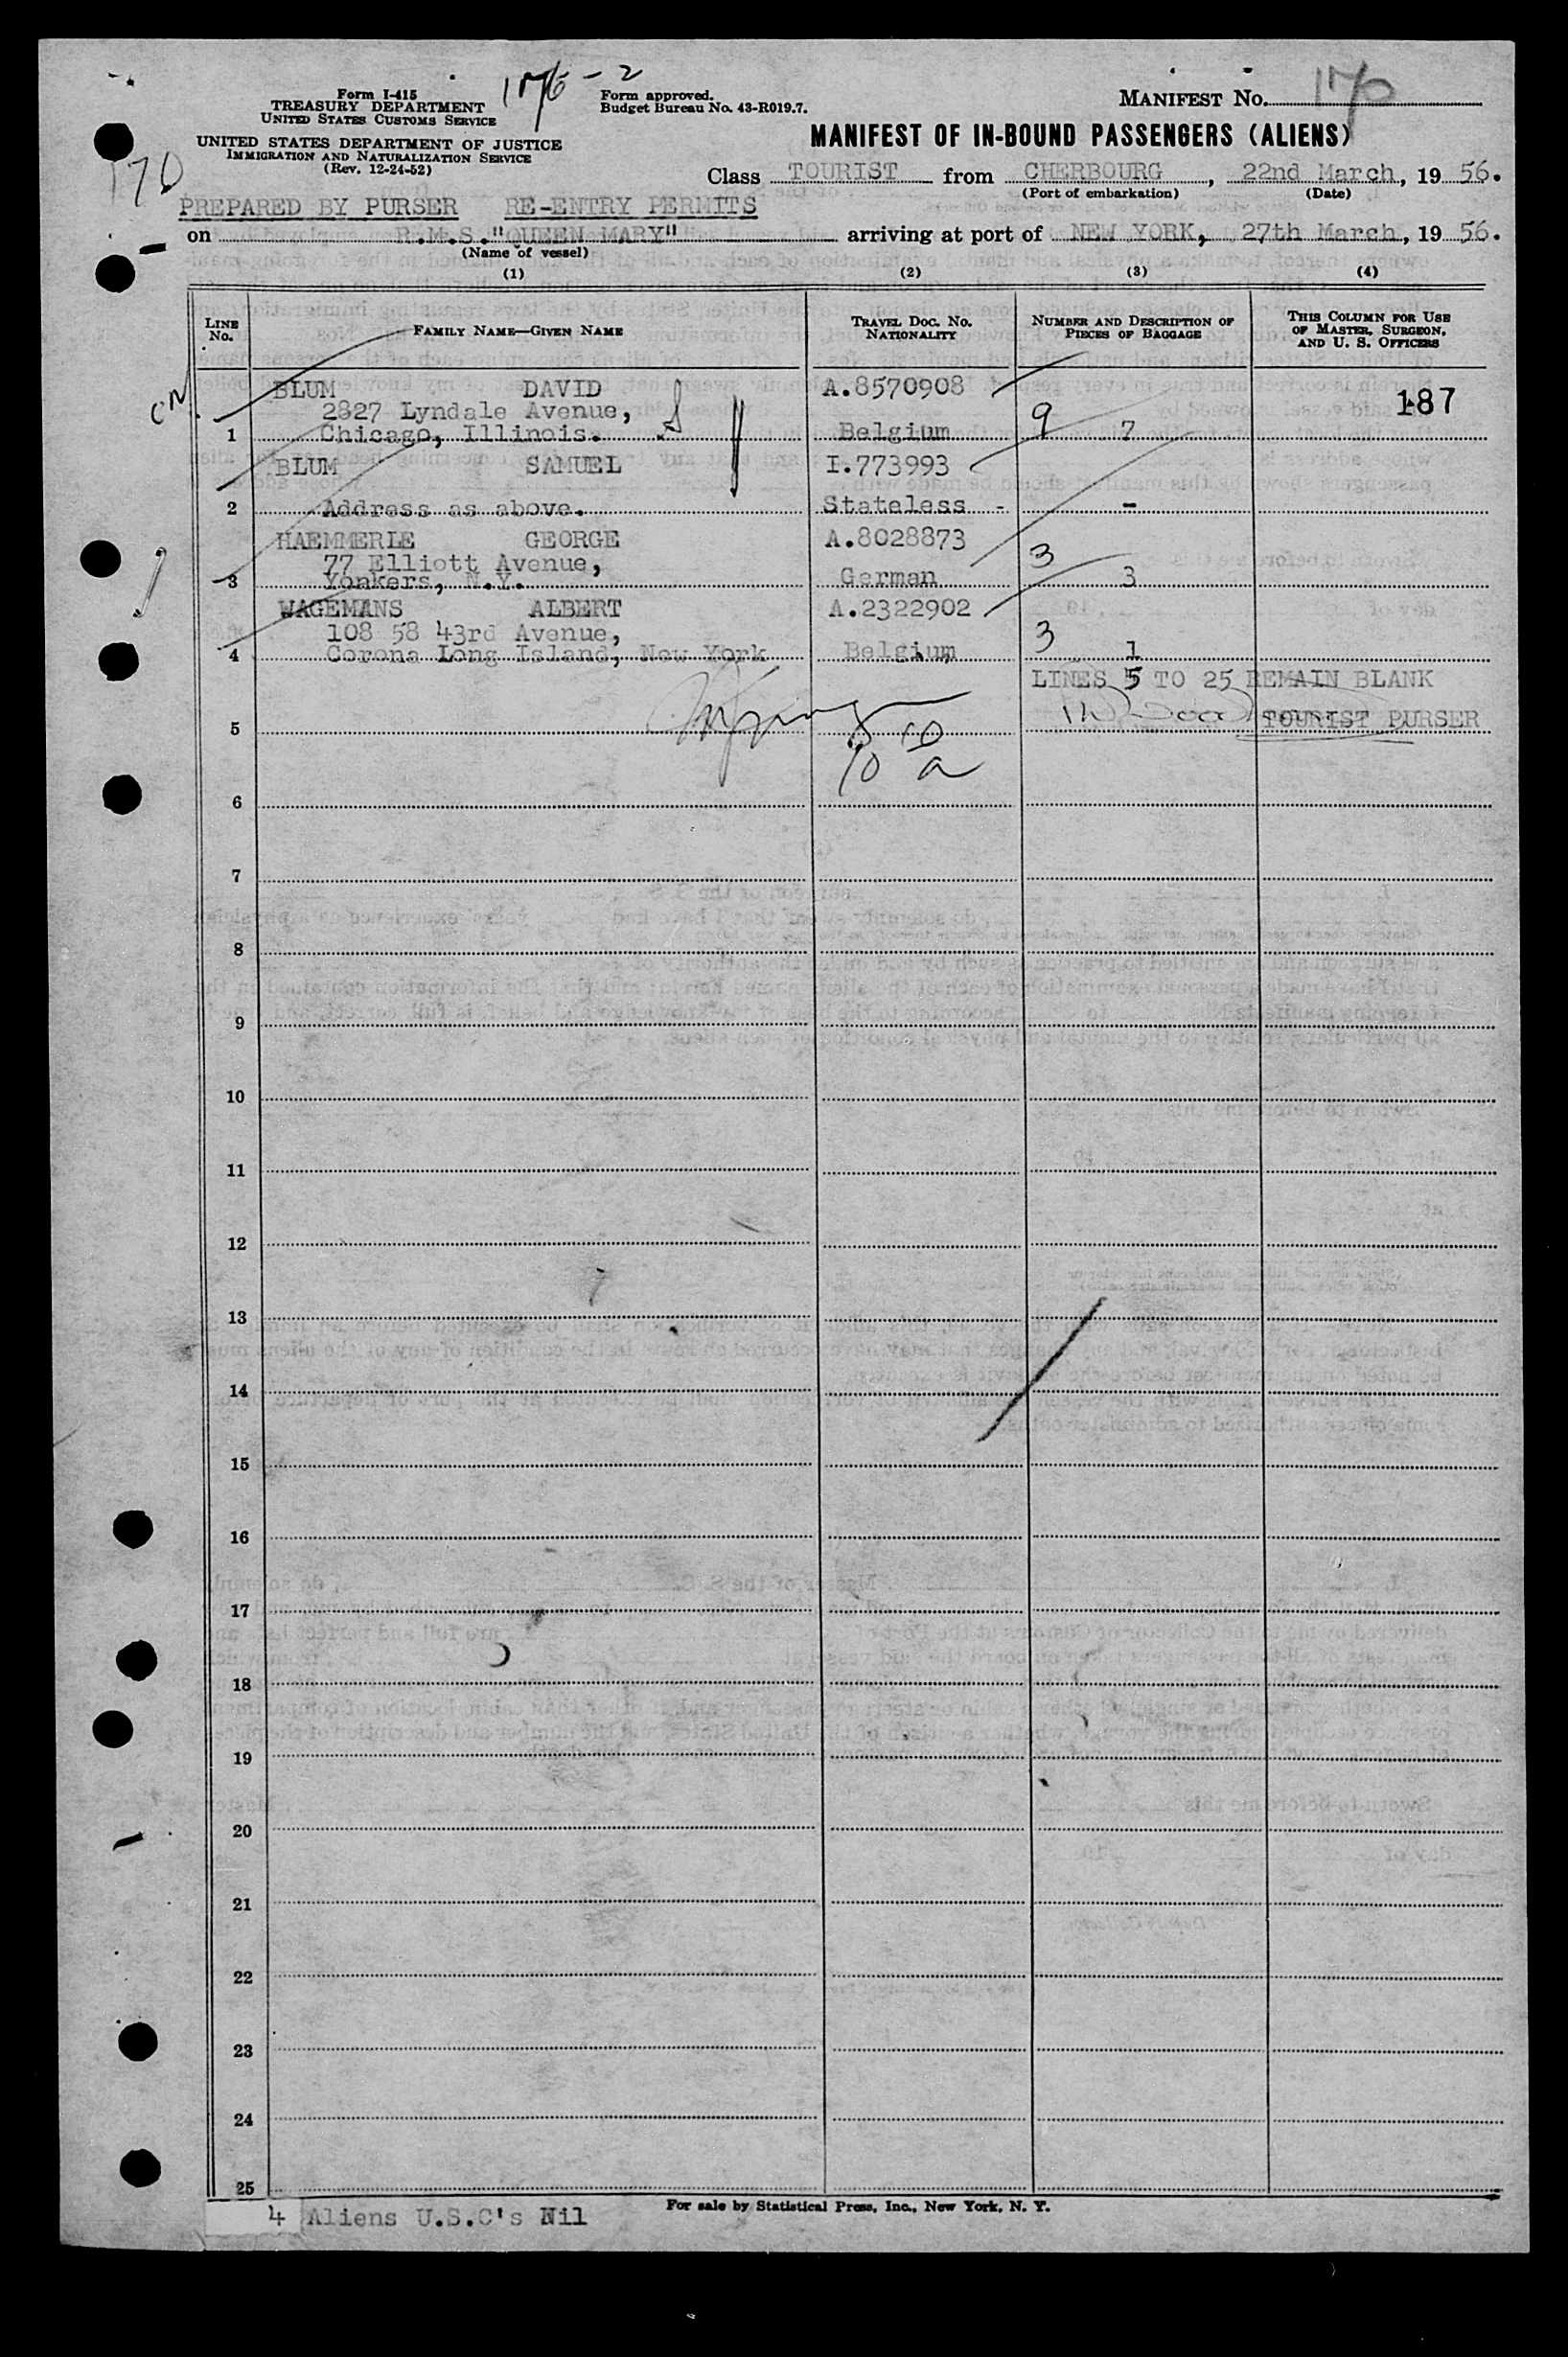 Form I-415
TREASURY DEPARTMENT
UNITED STATES CUSTOMS SERVICE
176-2
Form approved.
Budget Bureau No. 43-R019.7.
MANIFEST No. 176
UNITED STATES DEPARTMENT OF JUSTICE
IMMIGRATION AND NATURALIZATION SERVICE
(Rev. 12-24-52)
MANIFEST OF IN-BOUND PASSENGERS (ALIENS)
Class TOURIST from CHERBOURG, 22nd March, 1956.
(Port of embarkation) (Date)
PREPARED BY PURSER RE-ENTRY PERMITS
on R.M.S."QUEEN MARY" arriving at port of NEW YORK, 27th March, 1956.
(Name of vessel)
(1) (2) (3) (4)
LINE No. FAMILY NAME—GIVEN NAME TRAVEL DOC. No. NATIONALITY NUMBER AND DESCRIPTION OF PIECES OF BAGGAGE THIS COLUMN FOR USE OF MASTER, SURGEON, AND U. S. OFFICERS
BLUM DAVID A.8570908 187
2827 Lyndale Avenue,
1 Chicago, Illinois. Belgium 9 7
BLUM SAMUEL I.773993
2 Address as above. Stateless - -
HAEMMERLE GEORGE A.8028873
77 Elliott Avenue,
3 Yonkers, N.Y. German 3 3
WAGEMANS ALBERT A.2322902
108 58 43rd Avenue,
4 Corona Long Island, New York Belgium 3 1
LINES 5 TO 25 REMAIN BLANK
5 TOURIST PURSER
6
7
8
9
10
11
12
13
14
15
16
17
18
19
20
21
22
23
24
25
4 Aliens U.S.C's Nil
For sale by Statistical Press, Inc., New York, N. Y.